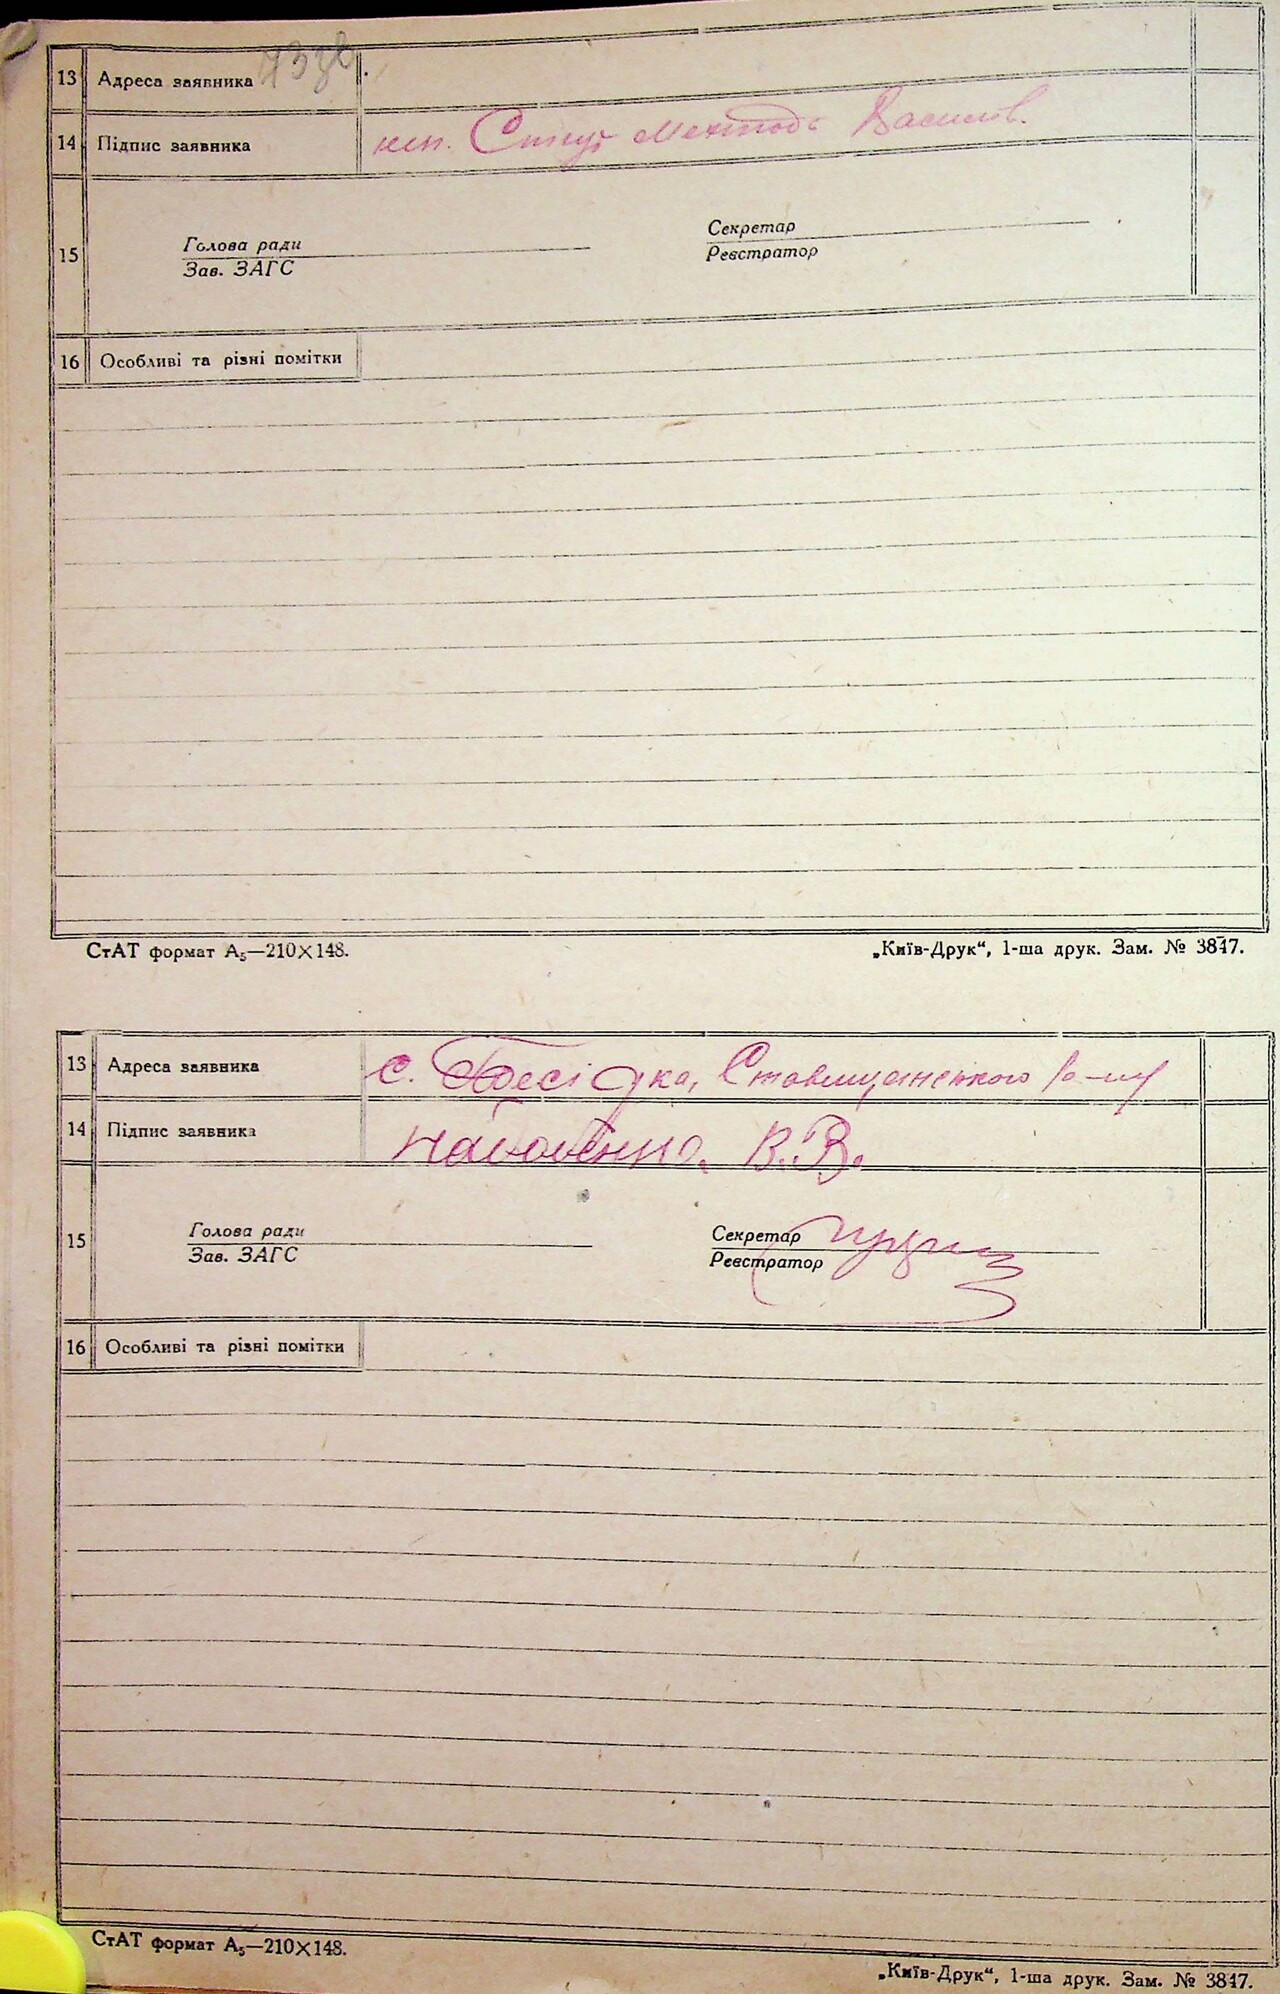 13 Адреса заявника 73зв
14 Підпис заявника Василів.
15 Голова ради Секретар
Зав. ЗАГС Реєстратор
16 Особливі та різні помітки
СтАТ формат А₅—210×148. „Київ-Друк“, 1-ша друк. Зам. № 3847.
13 Адреса заявника с. Бесідка, Ставищенського р-ну
14 Підпис заявника В. В.
15 Голова ради Секретар
Зав. ЗАГС Реєстратор
16 Особливі та різні помітки
СтАТ формат А₅—210×148.
„Київ-Друк“, 1-ша друк. Зам. № 3847.